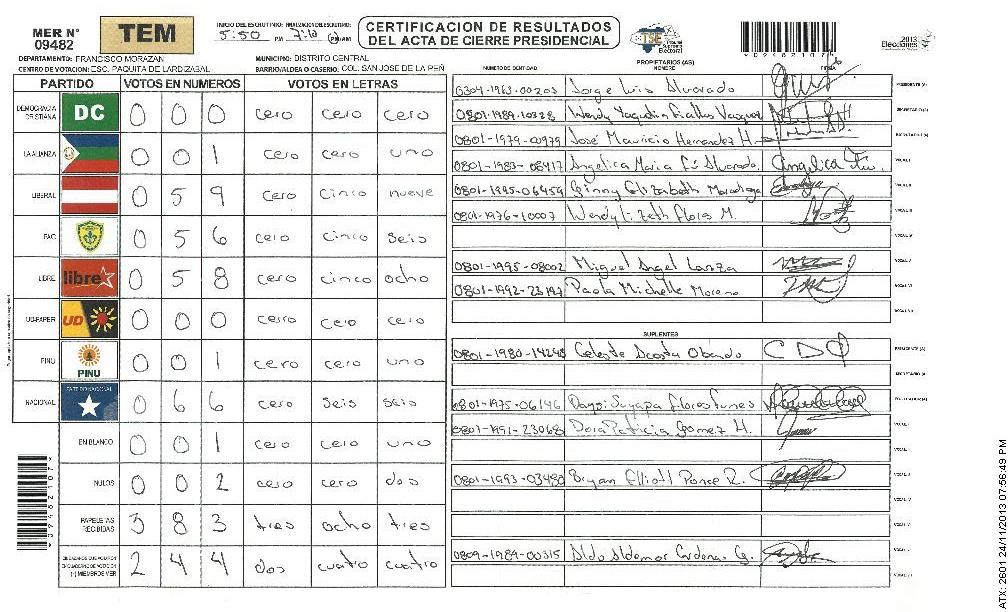 MER N° 09482
TEM
INICIO DEL ESCRUTINIO: 5:50 PM FINALIZACION DE ESCRUTINIO: 7:10 PM/AM
CERTIFICACION DE RESULTADOS
DEL ACTA DE CIERRE PRESIDENCIAL
TSE Tribunal Supremo Electoral
2013 Elecciones
DEPARTAMENTO: FRANCISCO MORAZAN MUNICIPIO: DISTRITO CENTRAL
CENTRO DE VOTACION: ESC. PAQUITA DE LARDIZABAL BARRIO/ALDEA O CASERIO: COL. SAN JOSE DE LA PEÑ
PARTIDO VOTOS EN NUMEROS VOTOS EN LETRAS
DEMOCRACIA CRISTIANA DC 0 0 0 cero cero cero
LA ALIANZA 0 0 1 cero cero uno
LIBERAL 0 5 9 cero cinco nueve
PAC 0 5 6 cero cinco seis
LIBRE libre 0 5 8 cero cinco ocho
UD-FAPER UD 0 0 0 cero cero cero
PINU PINU 0 0 1 cero cero uno
NACIONAL PARTIDO NACIONAL 0 6 6 cero seis seis
EN BLANCO 0 0 1 cero cero uno
NULOS 0 0 2 cero cero dos
PAPELETAS RECIBIDAS 3 8 3 tres ocho tres
CIUDADANOS QUE VOTARON EN CUADERNO DE VOTACION (+) MIEMBROS MER 2 4 4 dos cuatro cuatro
PROPIETARIOS (AS)
NUMERO DE IDENTIDAD NOMBRE FIRMA
0304-1963-00203 Jorge Luis Alvarado PRESIDENTE (A)
0801-1989-10328 Wendy Vasquez SECRETARIO (A)
0801-1979-00979 José Mauricio Hernandez H. ESCRUTADOR (A)
0801-1983-08417 Angelica Maria Fú Alvarado Angelica Fu. VOCAL I
0801-1995-06459 Ginny Elizabeth Maradiaga VOCAL II
0801-1976-10007 Wendy Lizeth Flores M. VOCAL III
VOCAL IV
0801-1995-08002 Miguel Angel Lanza VOCAL V
0801-1992-23197 Paola Michelle Moreno VOCAL VI
VOCAL VII
SUPLENTES
0801-1980-14245 Celeste Acosta Obando CDO PRESIDENTE (A)
SECRETARIO (A)
0801-1975-06146 Suyapa Flores Funes ESCRUTADOR (A)
0801-1991-23068 Dora Patricia Gomez H. VOCAL I
VOCAL II
0801-1993-03480 Bryan Elliott Ponce R. VOCAL III
VOCAL IV
VOCAL V
0809-1989-00315 Aldo Aldemar Cardenas G. VOCAL VI
VOCAL VII
ATX: 2601 24/11/2013 07:56:49 PM